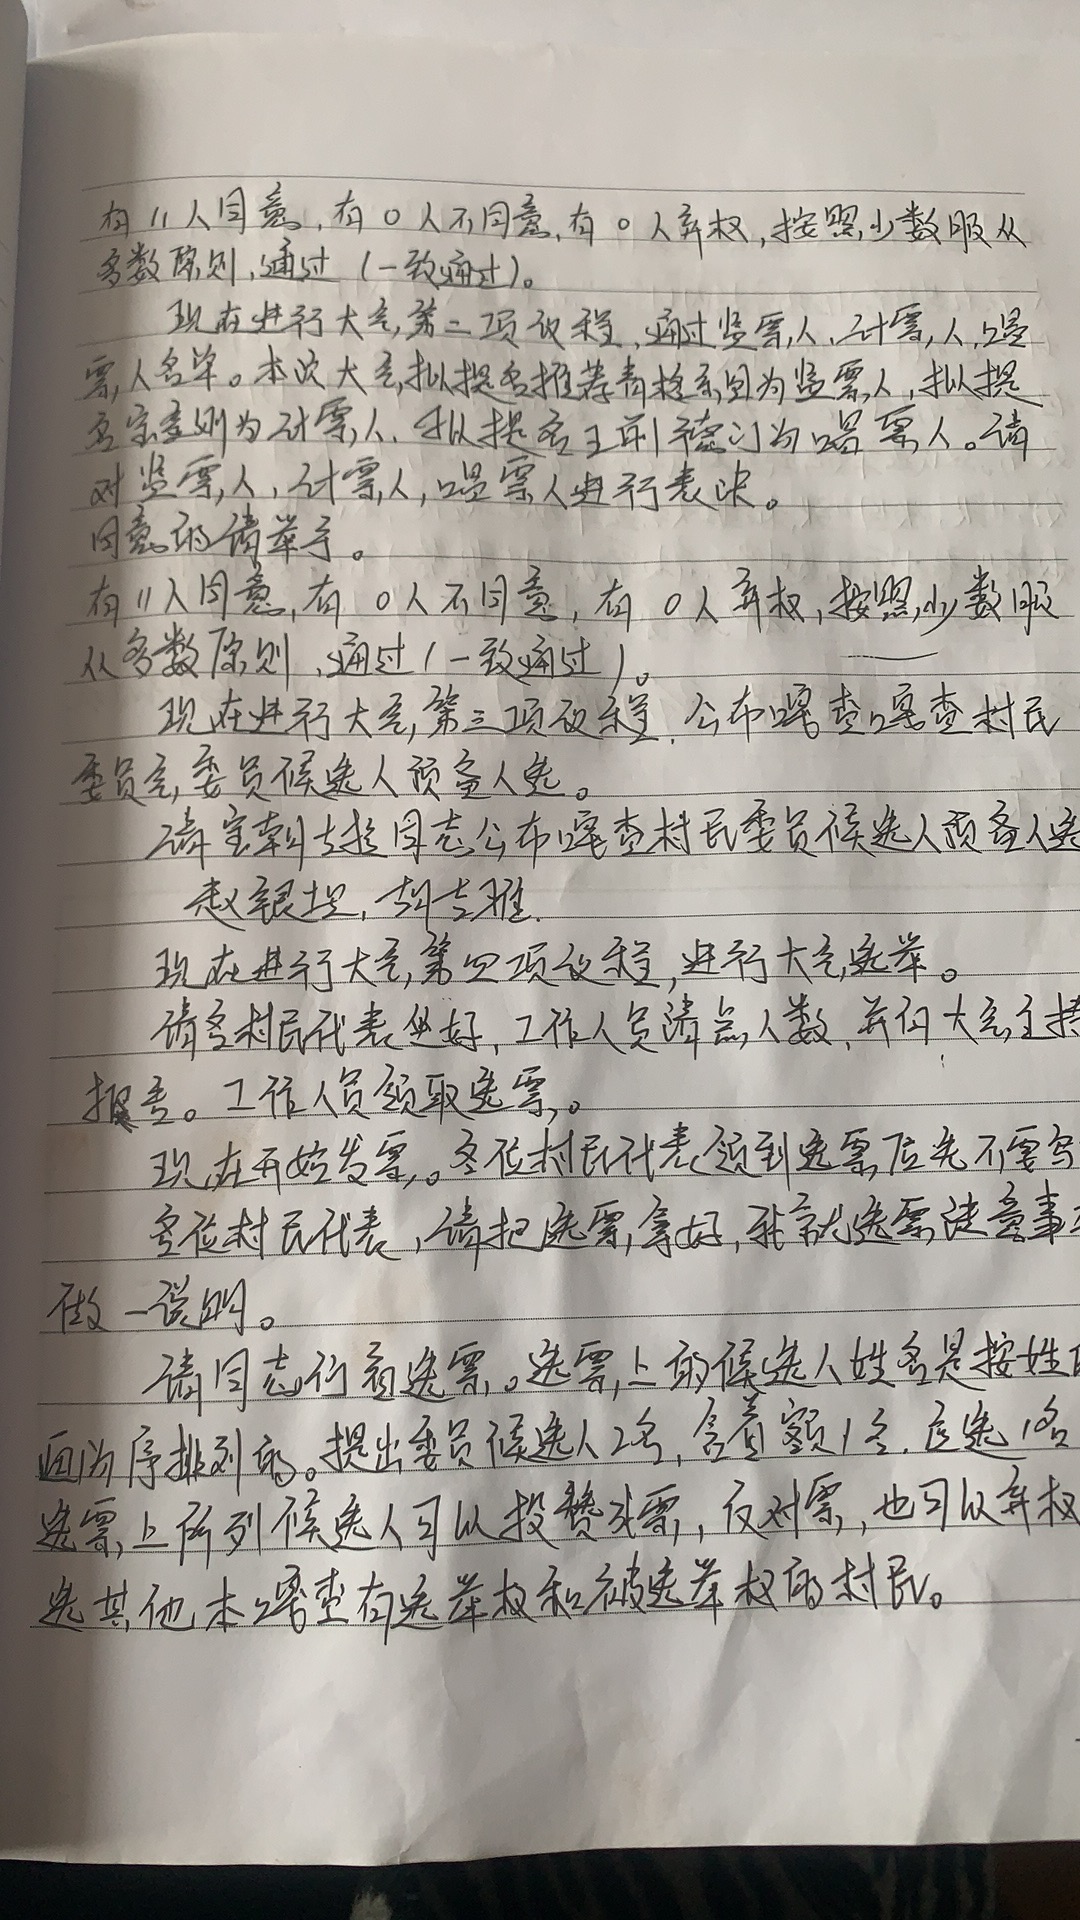 有11人同意,有0人不同意,有0人弃权,按照少数服从
多数原则,通过(一致通过)。
现在进行大会第二项议程,通过监票人、计票人,唱
票人名单。本次大会拟提名推荐青格乐图为监票人,拟提
名宝 为计票人,拟提名 为唱票人。请
对监票人,计票人,唱票人进行表决。
同意的请举手。
有11人同意,有0人不同意,有0人弃权,按照少数服
从多数原则,通过(一致通过)。
现在进行大会第三项议程.公布嘎查嘎查村民
委员会委员候选人预备人选。
请宝 同志公布嘎查村民委员候选人预备人选
赵银 ,
现在进行大会第四项议程,进行大会选举。
请各村民代表坐好,工作人员清点人数,并向大会主持
报告。工作人员领取选票。
现在开始发票。各位村民代表领到选票后先不要写
各位村民代表,请把选票拿好,我就选票注意事
做一说明。
请同志们看选票。选票上的候选人姓名是按姓
画为序排列的。提出委员候选人2名,含差额1名.应选1名
选票上所列候选人可以投赞成票,反对票,也可以弃权
选其他本嘎查有选举权和被选举权的村民。